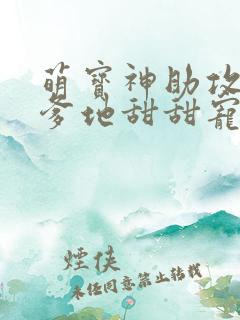 萌寶神助攻
爹地甜甜寵
煙俠
未任同意禁止转载